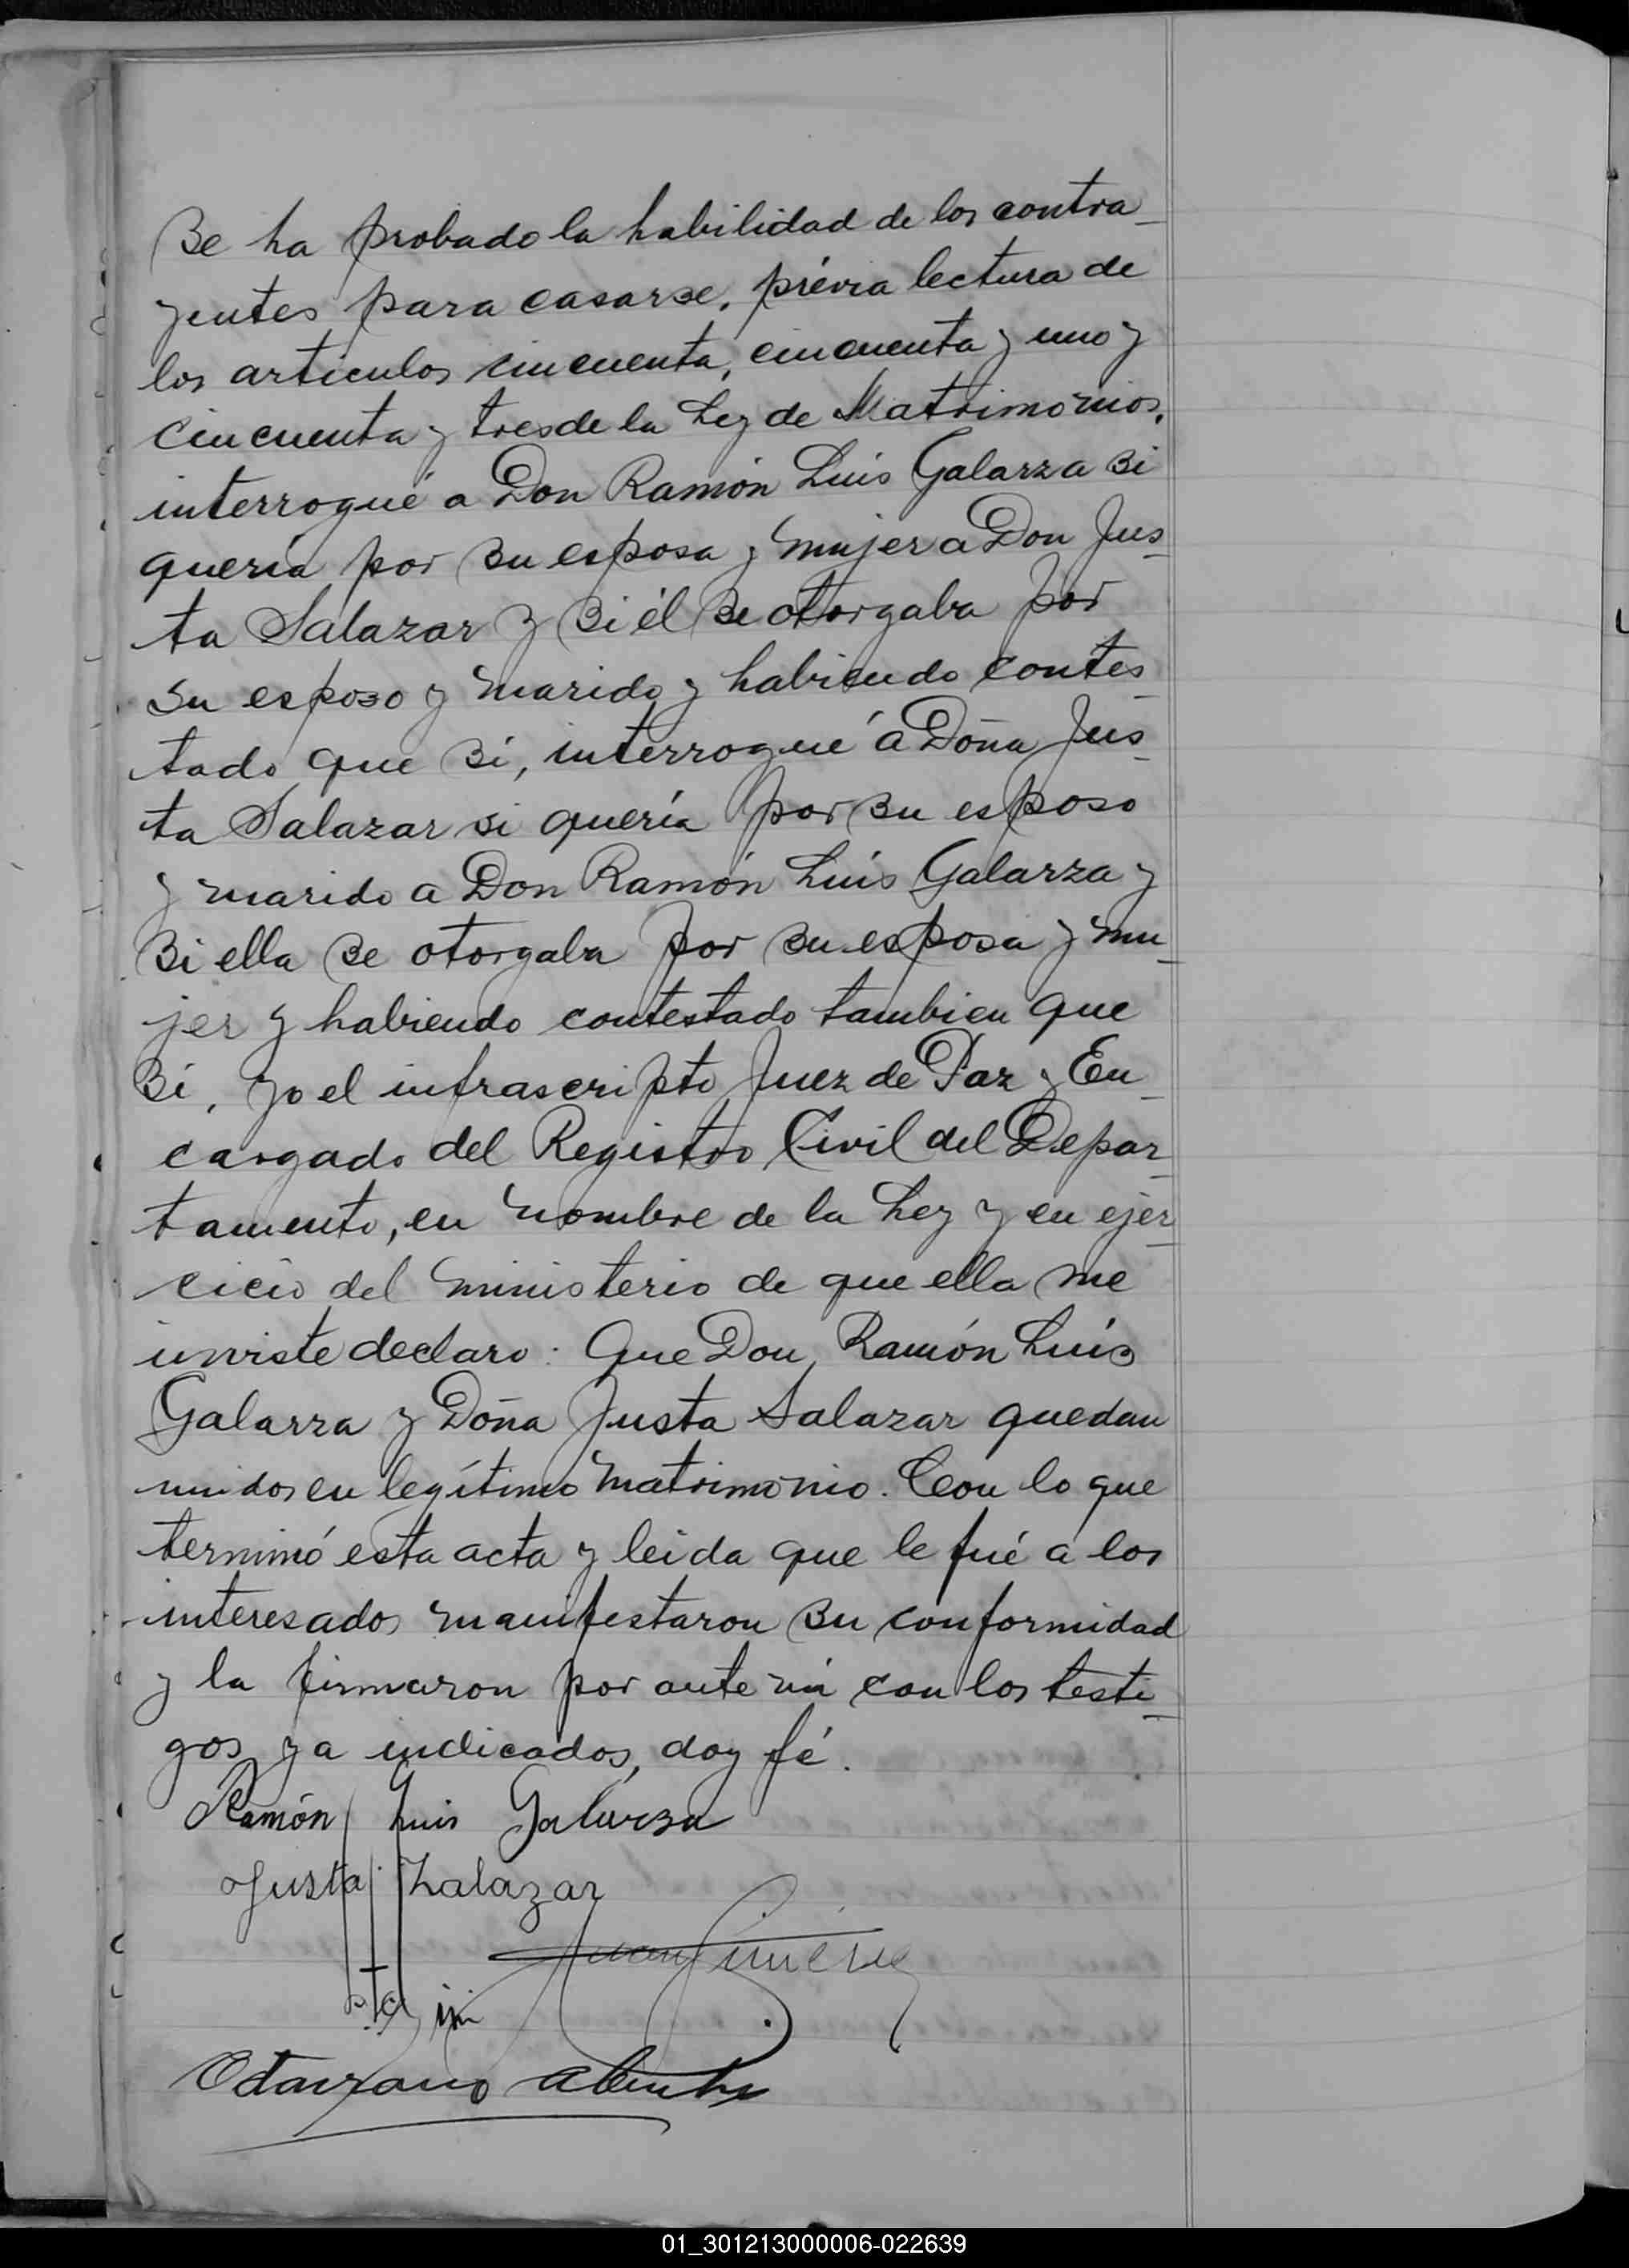 Se ha probado la habilidad de los contra_
yentes para casarse, prévia lectura de
los articulos cincuenta, cincuenta y uno y
cincuenta y tres de la Ley de Matrimonios,
interrogué a Don Ramón Luis Galarza si
quería por su esposa y mujer a Don Jus_
ta Salazar y si él se otorgaba por
su esposo y marido y habiendo contes_
tado que si, interrogué á Doña Jus_
ta Salazar si quería por su esposo
y marido a Don Ramón Luis Galarza y
si ella se otorgaba por su esposa y mu_
jer y habiendo contestado tambien que
si, yo el infrascripto Juez de Paz y En_
cargado del Registro Civil del Depar_
tamento, en nombre de la Ley y en ejer_
cicio del ministerio de que ella me
inviste declaro: Que Don Ramón Luis
Galarza y Doña Justa Salazar quedan
unidos en legítimo matrimonio. Con lo que
terminó esta acta y leida que le fué a los
interesados manifestaron su conformidad
y la firmaron por ante mi con los testi_
gos ya indicados, doy fé.
Ramón Luis Galarza
Justa Zalazar
Juan Gimenez